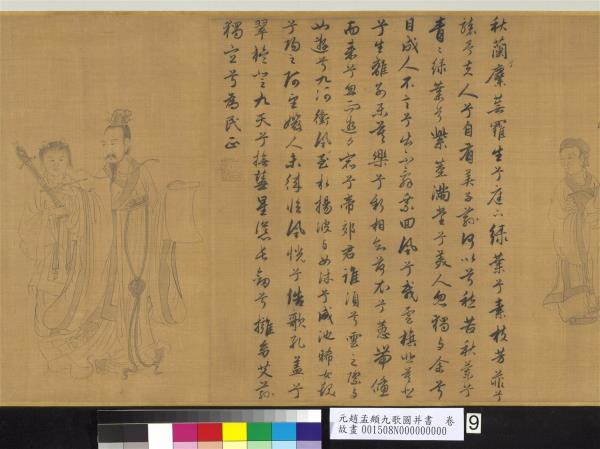 秋蘭麋蕪羅生兮庭下綠葉兮素枝芳菲兮
襲兮夫人兮自有美子蓀何以兮愁苦秋蘭兮
青々綠葉兮紫莖滿堂兮美人忽獨與余兮
目成入不言兮出不辭乘回風兮載雲旗悲莫悲
兮生離別樂莫樂兮新相知荷衣兮蕙帶儵
而來兮忽而逝夕宿兮帝郊君誰須兮雲之際與
女遊兮九河衝風至水揚波與女沐兮咸池晞女髮
兮陽之阿望媺人未徠臨風怳兮浩歌孔蓋兮
翠旍登九天兮撫彗星竦長劍兮擁幼艾蓀
獨宜兮為民正
元趙孟頫九歌圖并書　卷
故畫001508N000000000
9